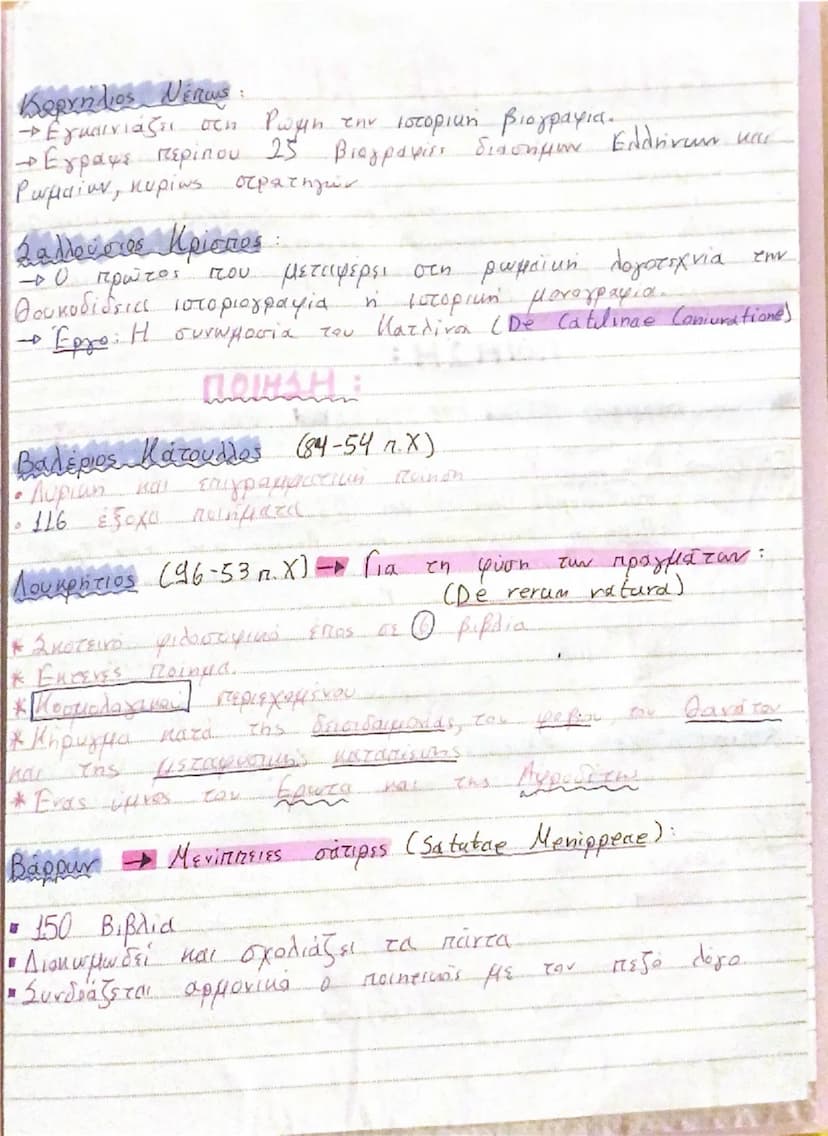 Κορνήλιος Νέπως:
→ Εγκαινιάζει στη Ρώμη την ιστορική βιογραφία.
→ Έγραψε περίπου 25 βιογραφίες διασήμων Ελλήνων και
Ρωμαίων, κυρίως στρατηγών
Σαλλούστιος Κρίσπος:
→ Ο πρώτος που μεταφέρει στη ρωμαϊκή λογοτεχνία την
Θουκυδίδεια ιστοριογραφία ή ιστορική μονογραφία.
→ Έργο: Η συνωμοσία του Κατιλίνα (De Catilinae Coniuratione)
ΠΟΙΗΣΗ:
Βαλέριος Κάτουλλος (84-54 π.Χ)
• Λυρική και επιγραμματική ποίηση
• 116 έξοχα ποιήματα
Λουκρήτιος (96-53 π.Χ) → Για τη φύση των πραγμάτων:
(De rerum natura)
* Σκοτεινό φιλοσοφικό έπος σε 6 βιβλία
* Εκτενές ποίημα.
* Κοσμολογικού περιεχομένου
* Κήρυγμα κατά της δεισιδαιμονίας, του φόβου του θανάτου
και της μεταφυσικής καταπίεσης
* Ένας ύμνος του Έρωτα και της Αφροδίτης
Βάρρων → Μενίππειες σάτιρες (Satutae Menippeae):
▪ 150 Βιβλία
▪ Διακωμωδεί και σχολιάζει τα πάντα
▪ Συνδοάζεται αρμονικά ο ποιητικός με τον πεζό λόγο.